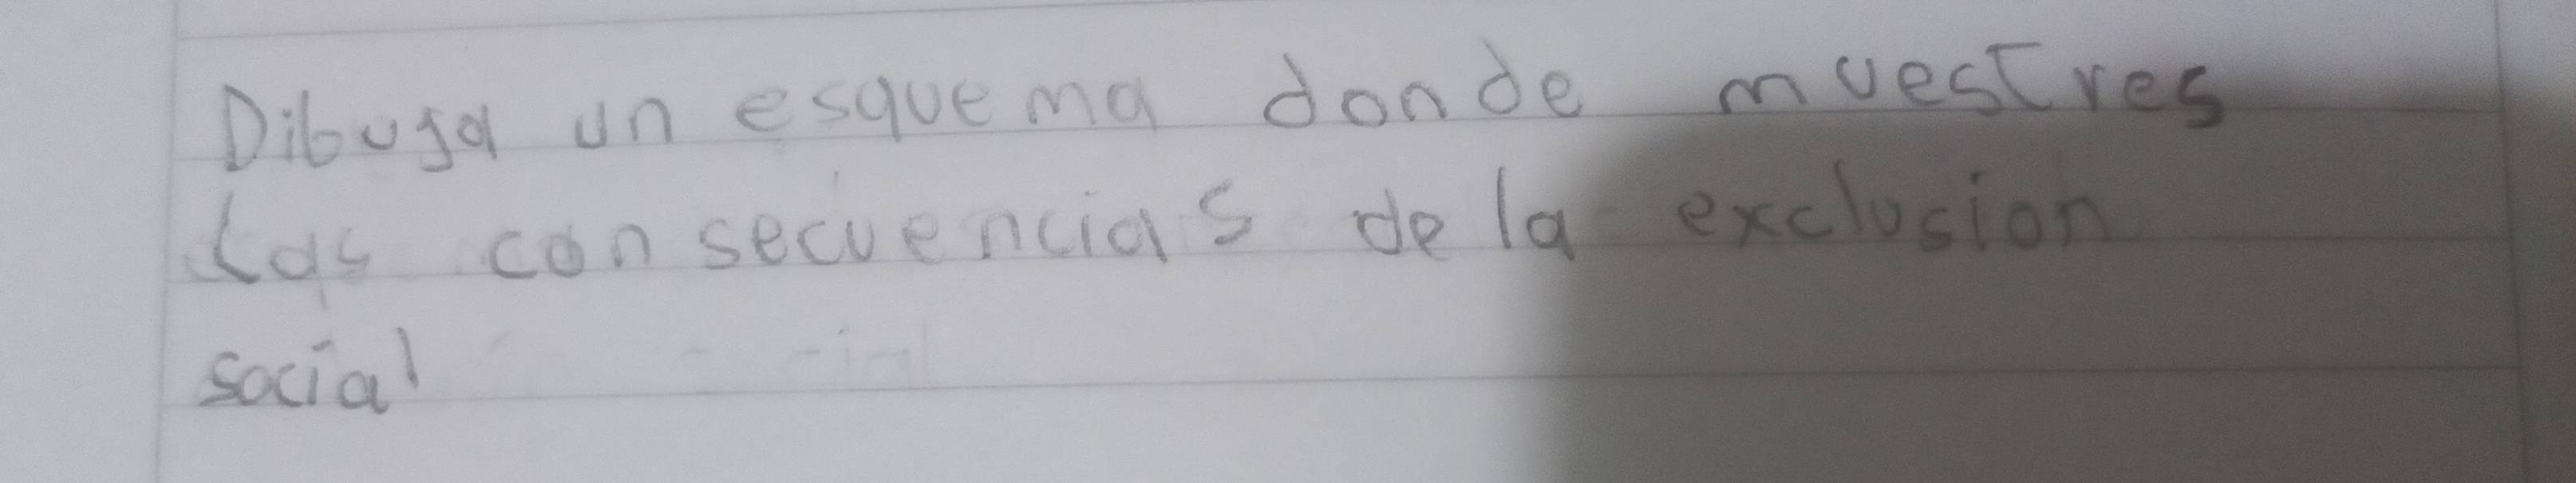 Dibuja un esquema donde muestres
Las consecuencias de la exclusion
social